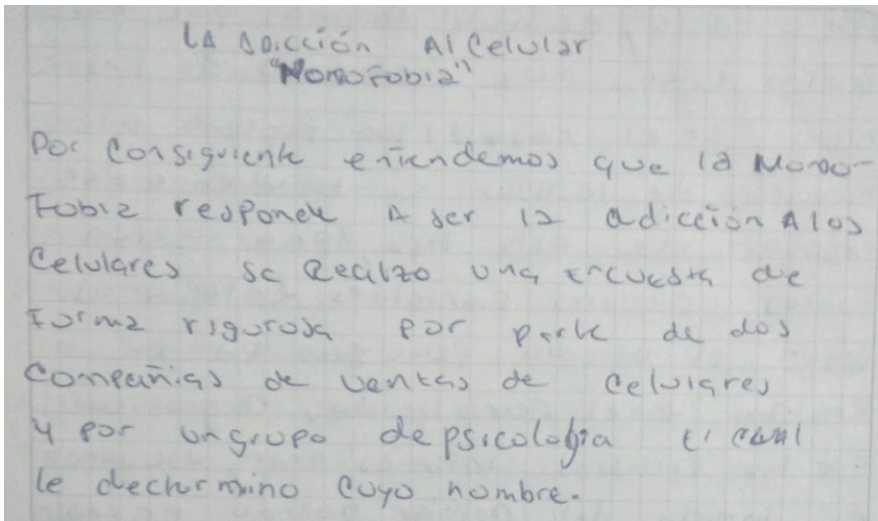 LA ADICCIÓN Al Celular
"NOMOFobia"
Por Consiguiente entendemos que la Momo-
Fobia responde A ser la adicción A los
Celulares se Realizo una encuesta de
Forma rigurosa por parte de dos
Compañias de ventas de celulares
y por un grupo de psicología El cual
le determino cuyo nombre.